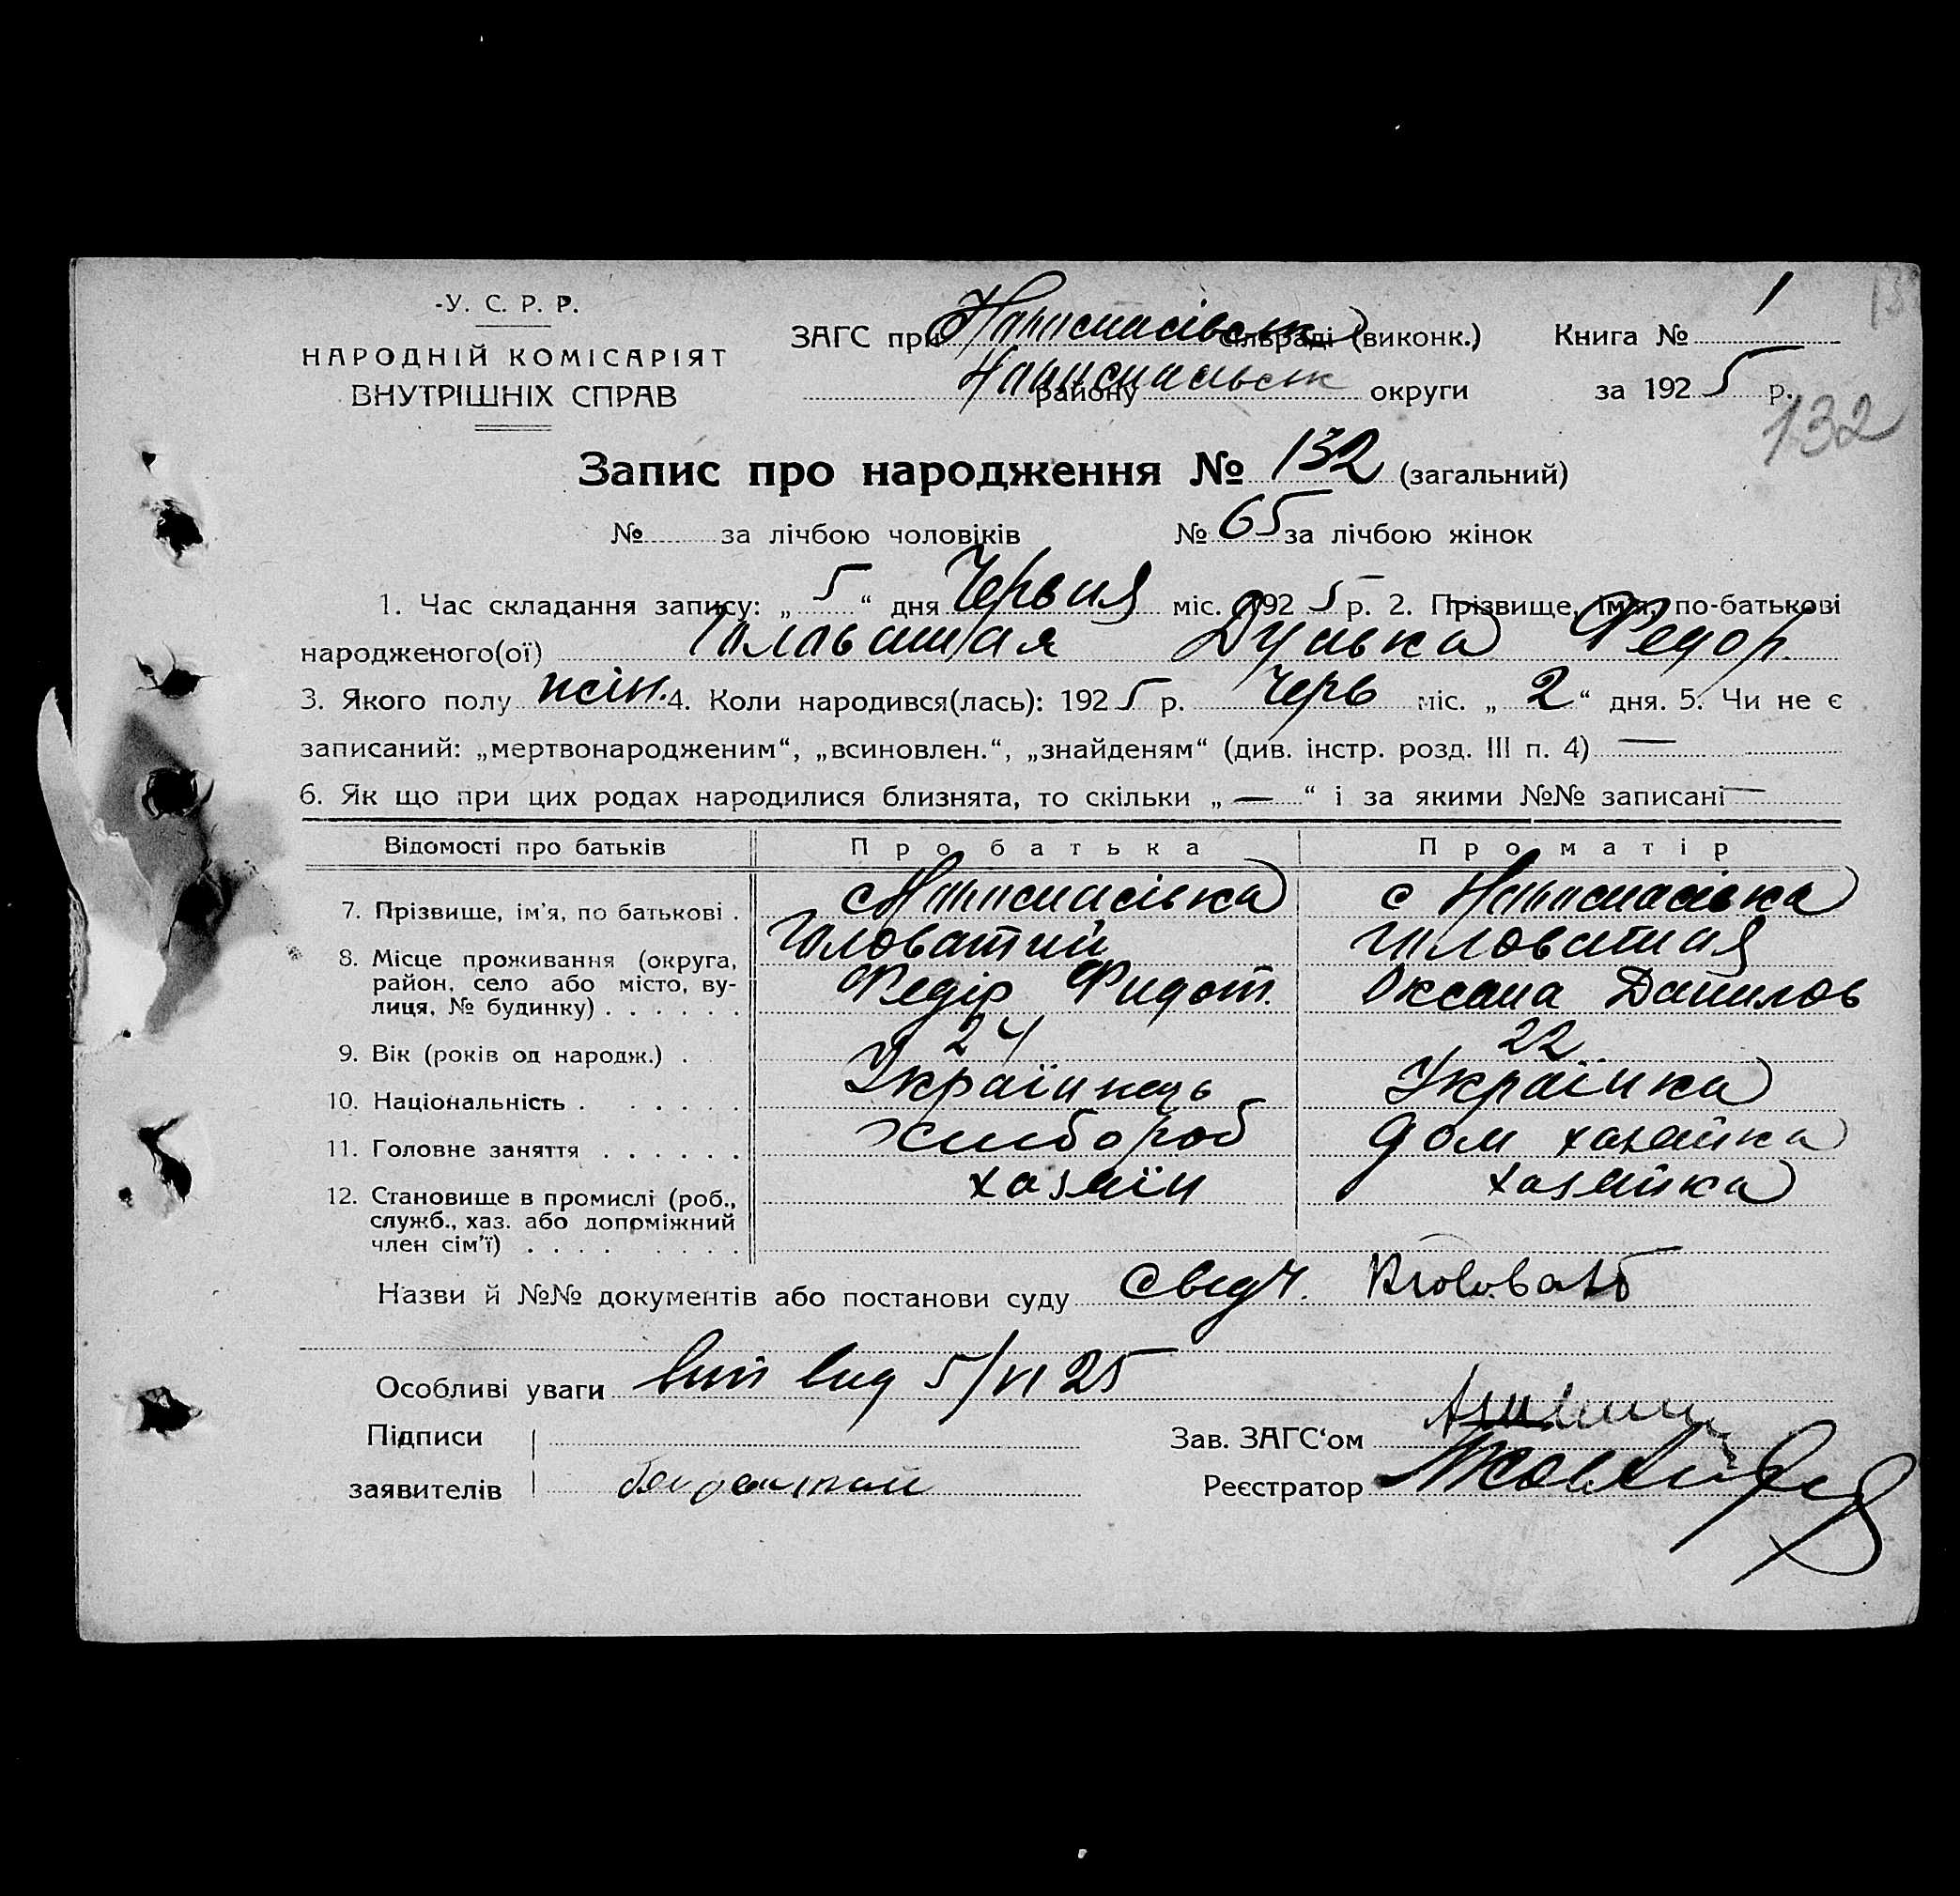 У. С. Р. Р.
НАРОДНІЙ КОМІСАРІЯТ
ВНУТРІШНІХ СПРАВ
ЗАГС при сільраді (виконк.)
району округи
Книга № 1
за 1925 р.
132
Запис про народження № 132 (загальний)
№ за лічбою чоловіків № 65 за лічбою жінок
1. Час складання запису: „5“ дня Червня міс. 1925 р. 2. Прізвище, ім'я, по-батькові
народженого(ої) Головатая Дунька Федор.
3. Якого полу жін. 4. Коли народився(лась): 1925 р. Черв міс. „2“ дня. 5. Чи не є
записаний: „мертвонародженим“, „всиновлен.“, „знайденям“ (див. інстр. розд. III п. 4) —
6. Як що при цих родах народилися близнята, то скільки „—“ і за якими №№ записані —
Відомості про батьків Про батька Про матір
7. Прізвище, ім'я, по батькові . с с
8. Місце проживання (округа, Головатий Головатая
район, село або місто, ву- Федір Федот. Оксана Данилов
лиця, № будинку) . . . . . .
9. Вік (років од народж.) . 24 22
10. Національність . . . . . . Українець Українка
11. Головне заняття . . . . . . хлібороб дом хазяйка
12. Становище в промислі (роб., хазяїн хазяйка
служб., хаз. або допоміжний
член сім'ї) . . . . . . . .
Назви й №№ документів або постанови суду
Особливі уваги 5/VI 25
Підписи
заявителів
Зав. ЗАГС'ом
Реєстратор